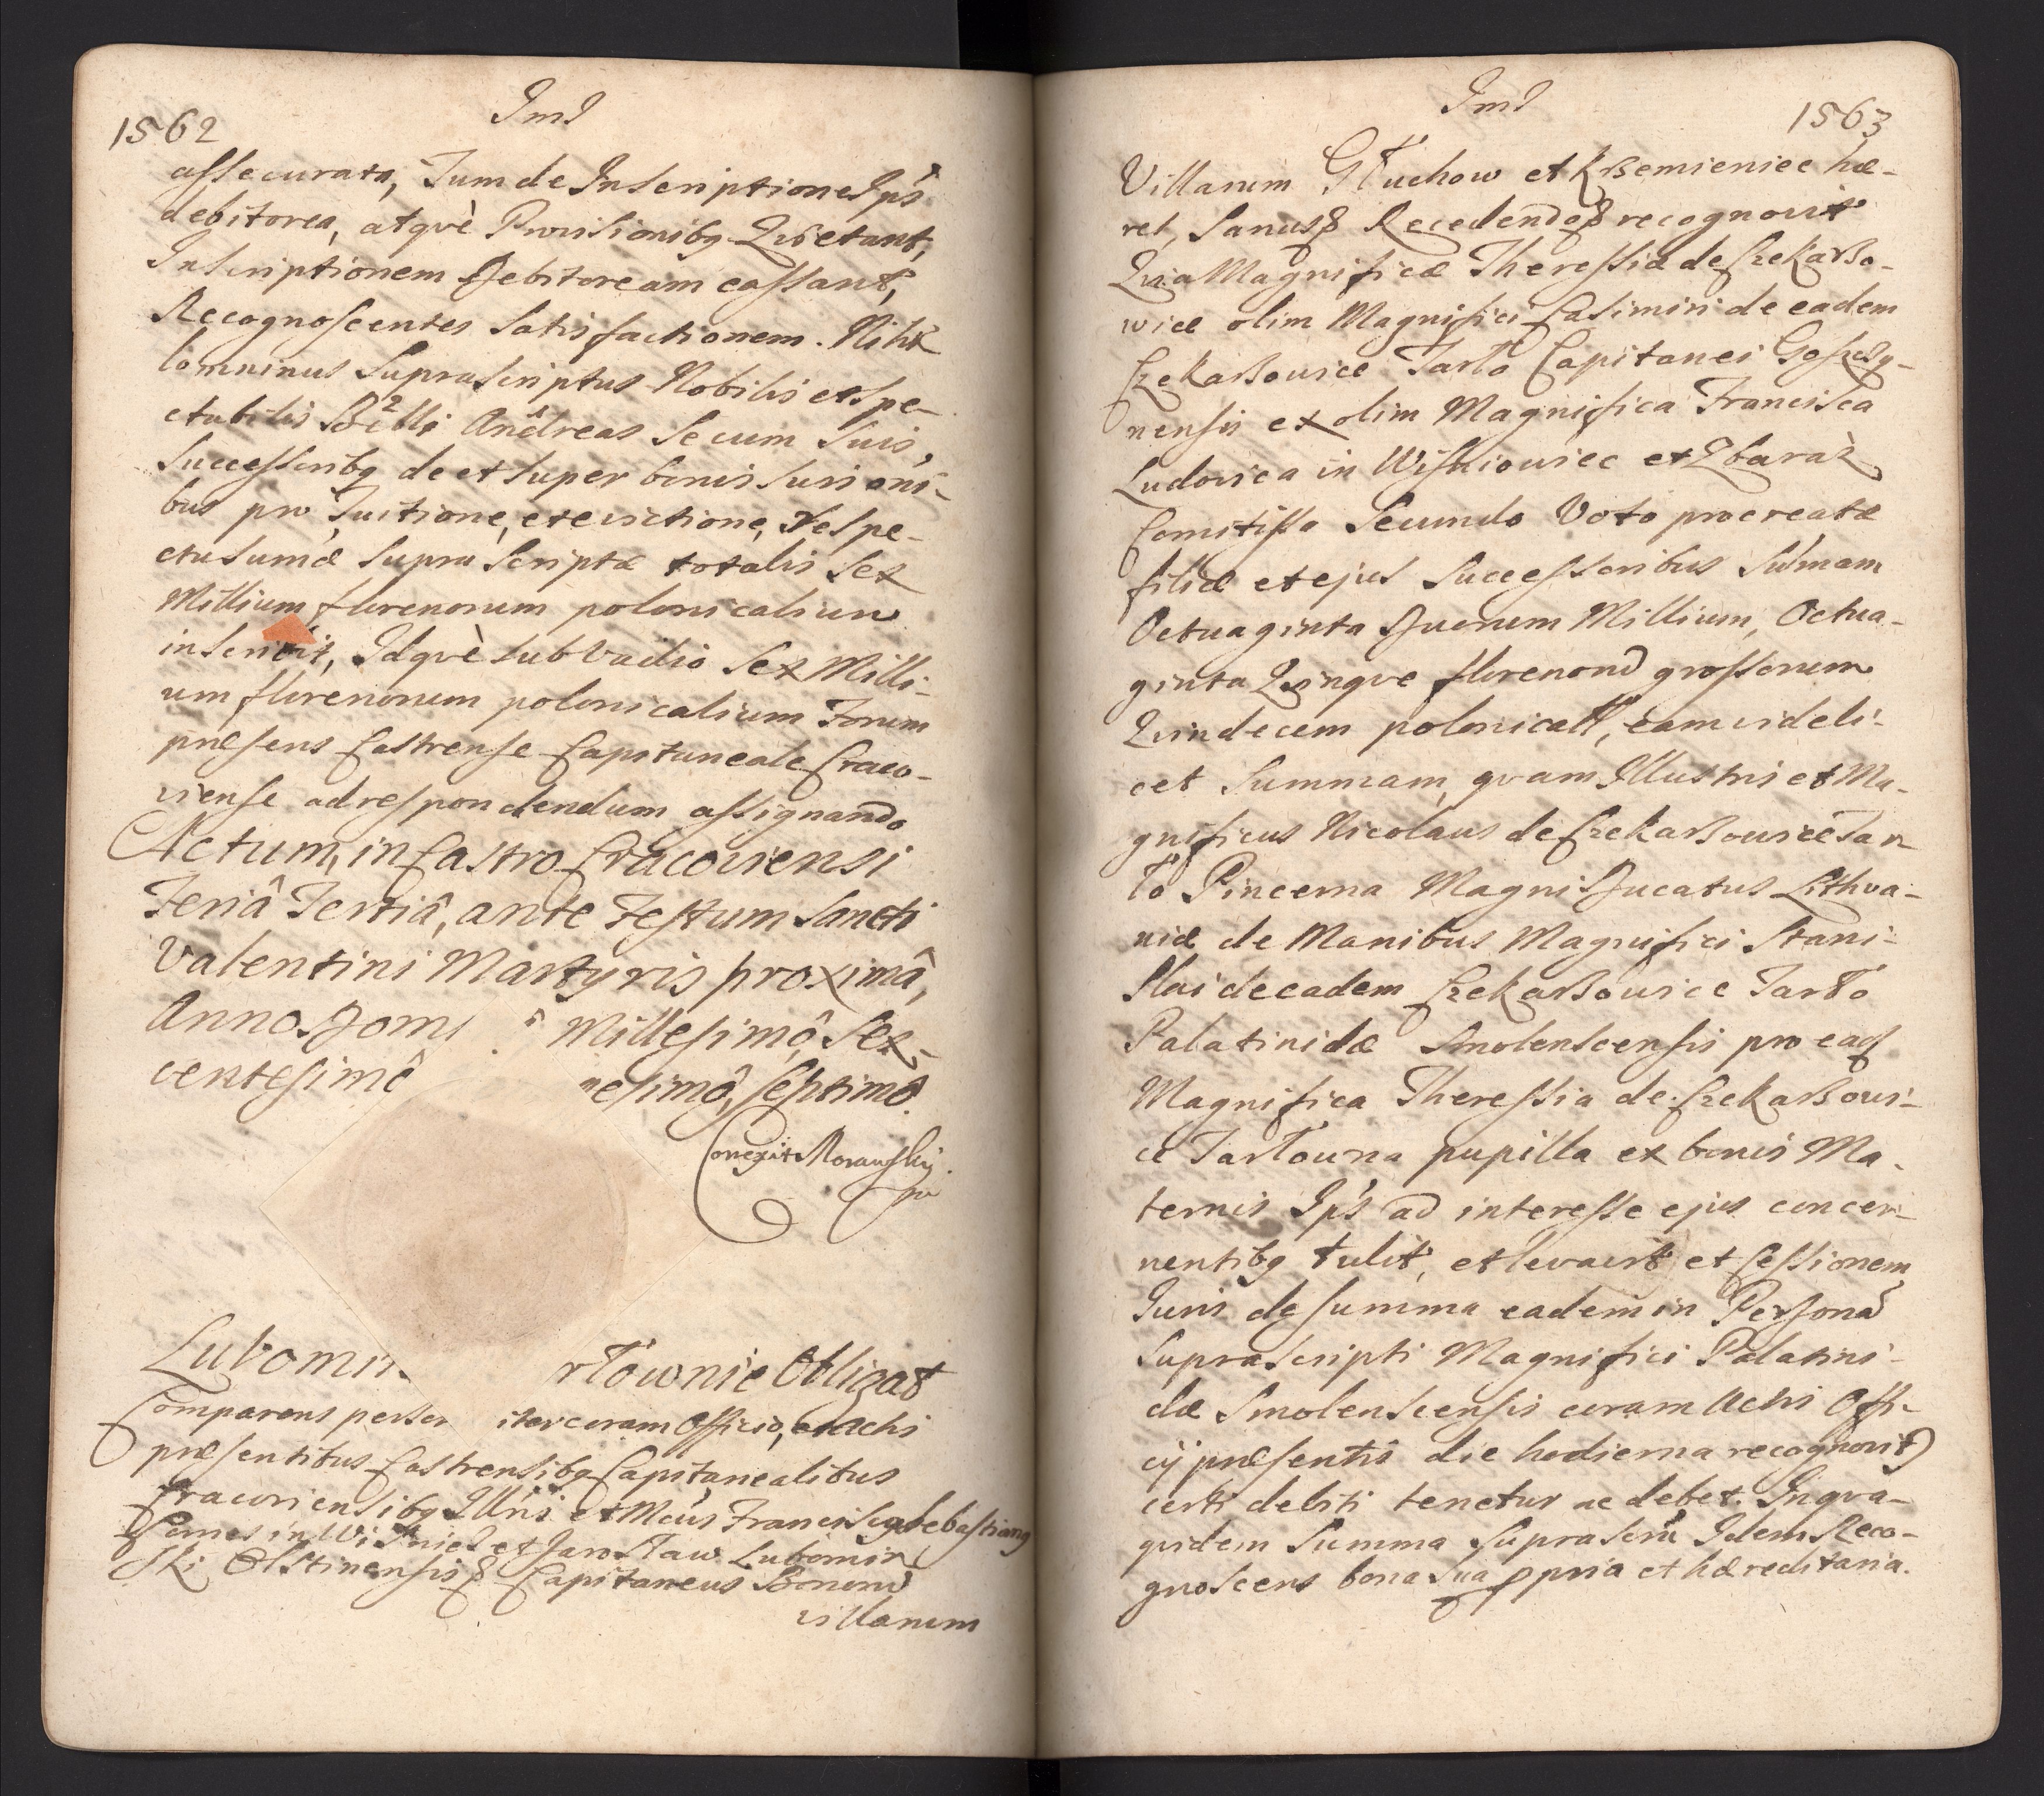 1562
Imd
assecurata, Tum de Inscriptione Ips
debitorea, atqvè Provisionibq Qvietant,
Inscriptionem Debitoream cassant,
Recognoscentes Satisfactionem. Nihi
lominus Suprascriptus Nobilis et Spe-
ctabilis Andreas Se cum Suis,
Successoribq de et super bonis Suis oni-
bus pro Tuitione, et evictione, Respe-
ctu Sumæ Supra Scriptæ totalis Sex
Millium florenorum polonicalium
inscribit, Idqvè sub Vadio Sex Milli-
um florenorum polonicalium Forum
præsens Castrense Capitaneale Craco-
viense ad respondendum assignando
Actum, in Castro Cracoviensi
Feriâ Tertiâ, ante Festum Sancti
Valentini Martyris proximâ,
Anno Domi Millesimô, Sex-
centesimô nesimô, Septimô.
Correxit Morawsky
Lubomir rtownie Obligat
Comparens person iter coram Officio, et Actis
præsentibus Castrensibq Capitanealibus
Cracoviensibq Illris et Mcus Franciscq Sebastianq
Comes in Wisnicz et Jarosław Lubomir
ski Olstinensis & Capitaneus Bonorum
villarum
Imd
1563
Villarum Głuchow et Krzemieniec hæ-
res, Sanus& Recedendo& recognovit
Qvia Magnificæ Theressiæ de Czekarzo-
wice olim Magnifici Casimiri de eadem
Czekarzowice Tarło Capitanei Goszczy-
nensis ex olim Magnifica Francisca
Ludovica in Wisniowiec et Zbaraż
Comitissa Secundo Voto procreatæ
filiæ et ejus Successoribus Summam
Octuaginta Duorum Millium, Octua-
ginta Qvinqve florenorum grossorum
Qvindecem polonicall, eam videli-
cet Summam, qvam Illustris et Ma-
gnificus Nicolaus de Czekarzowice Tar
ło Pincerna Magni Ducatus Lithva-
niæ de Manibus Magnifici Stani-
slai de eadem Czekarzowice Tarło
Palatinidæ Smolenscensis pro ead
Magnifica Theressia de Czekarzowi-
ce Tarłowna pupilla ex bonis Ma-
ternis Ips ad interesse ejus concer-
nentibq tulit, et levavit et Cessionem
Juris de summa eadem in Personam
Suprascripti Magnifici Palatini-
dæ Smolenscensis coram Actis Offi-
cij præsentis die hodierna recognovit
certi debiti tenetur ac debet. In qva-
qvidem Summa Suprascrta Idem Reco-
gnoscens bona Sua ppria et hæreditaria.